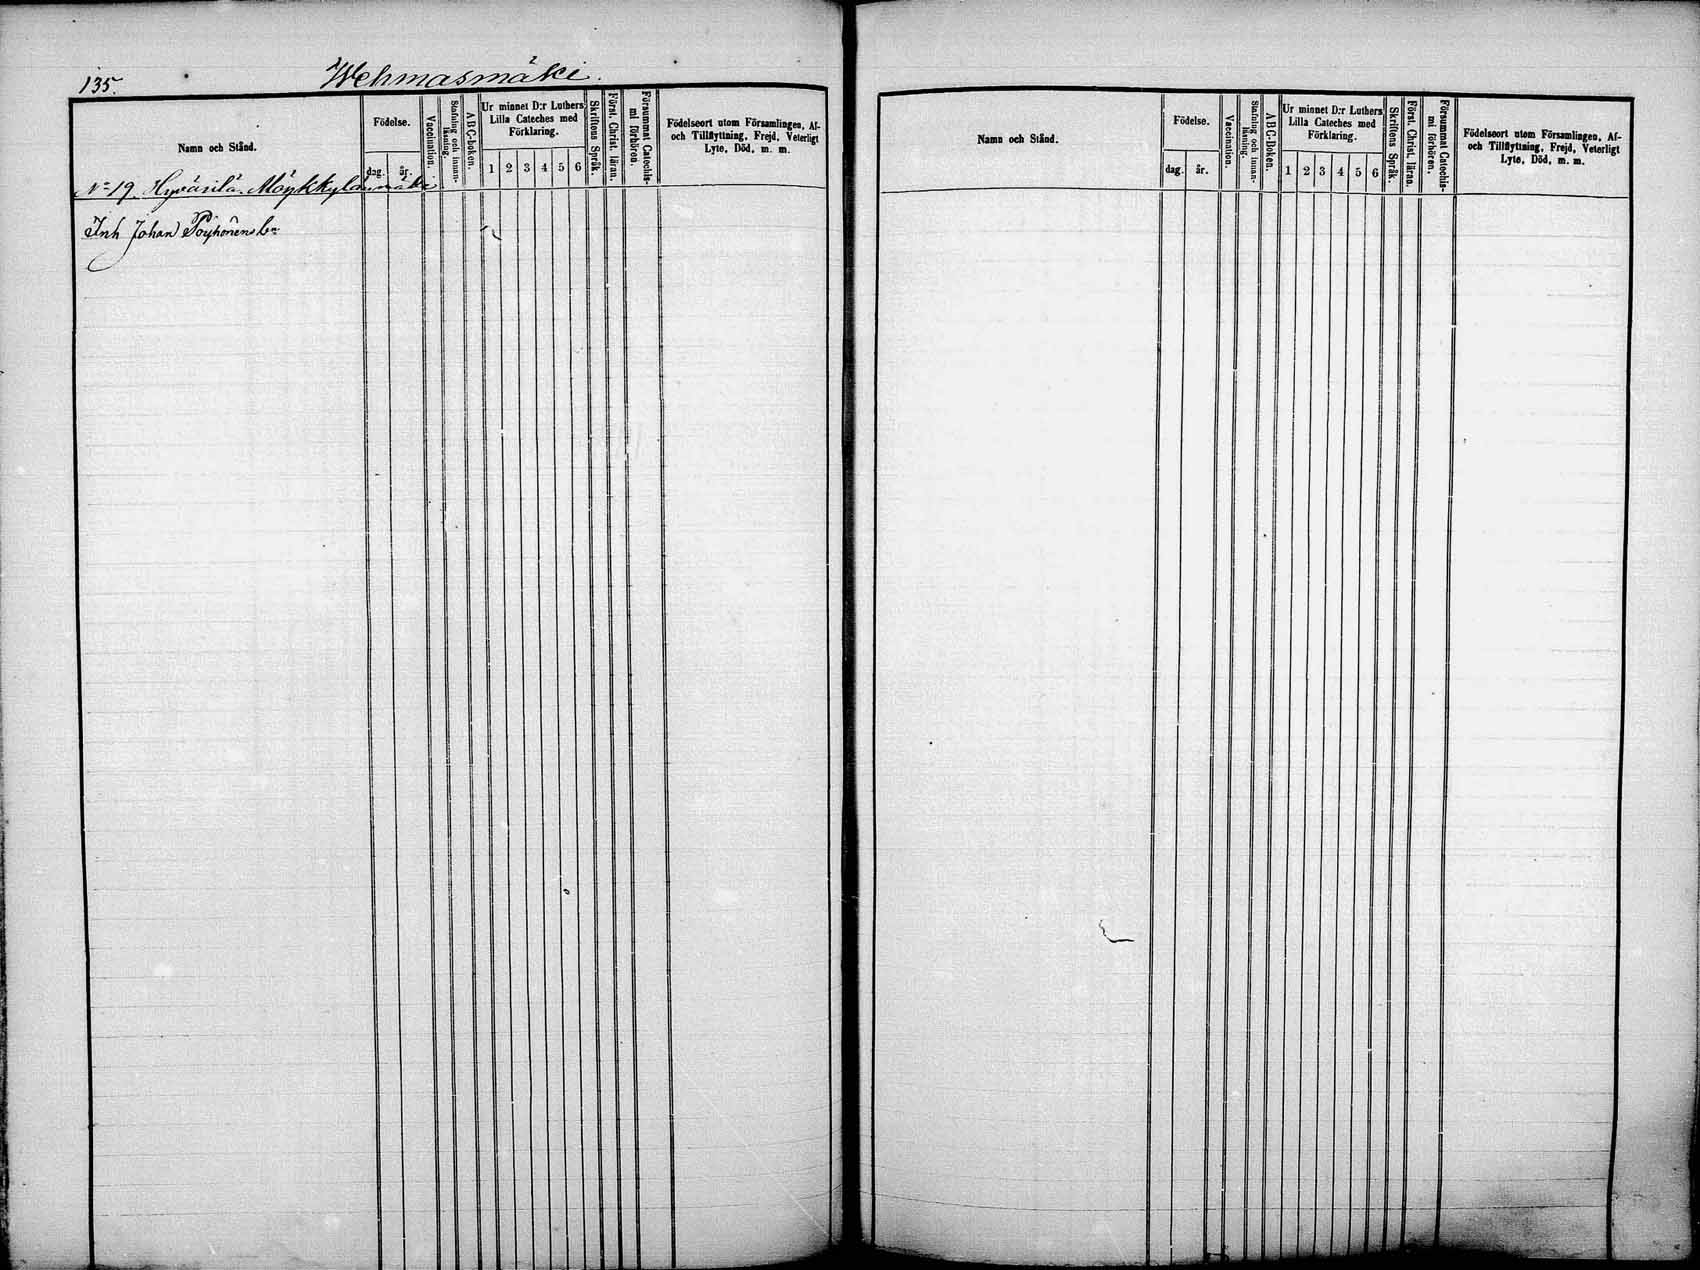 135. Wehmasmäki.
Namn och Stånd.
Födelse.
dag. år.
Vaccination.
Stafning och innan-
läsning.
ABC-boken.
Ur minnet D:r Luthers
Lilla Cateches med
Förklaring.
1 2 3 4 5 6
Skriftens Språk.
Först. Christ. läran.
Försummat Catechis-
mi förhören.
Födelseort utom Församlingen, Af-
och Tillflyttning, Frejd, Veterligt
Lyte, Död, m. m.
No 19. Hyvärilä
Inh Johan Pöyhönen
Namn och Stånd.
Födelse.
dag. år.
Vaccination.
Stafning och innan-
läsning.
ABC-Boken.
Ur minnet D:r Luthers
Lilla Cateches med
Förklaring.
1 2 3 4 5 6
Skriftens Språk.
Först. Christ. läran.
Försummat Catechis-
mi förhören.
Födelseort utom Församlingen, Af-
och Tillflyttning, Frejd, Veterligt
Lyte, Död, m. m.